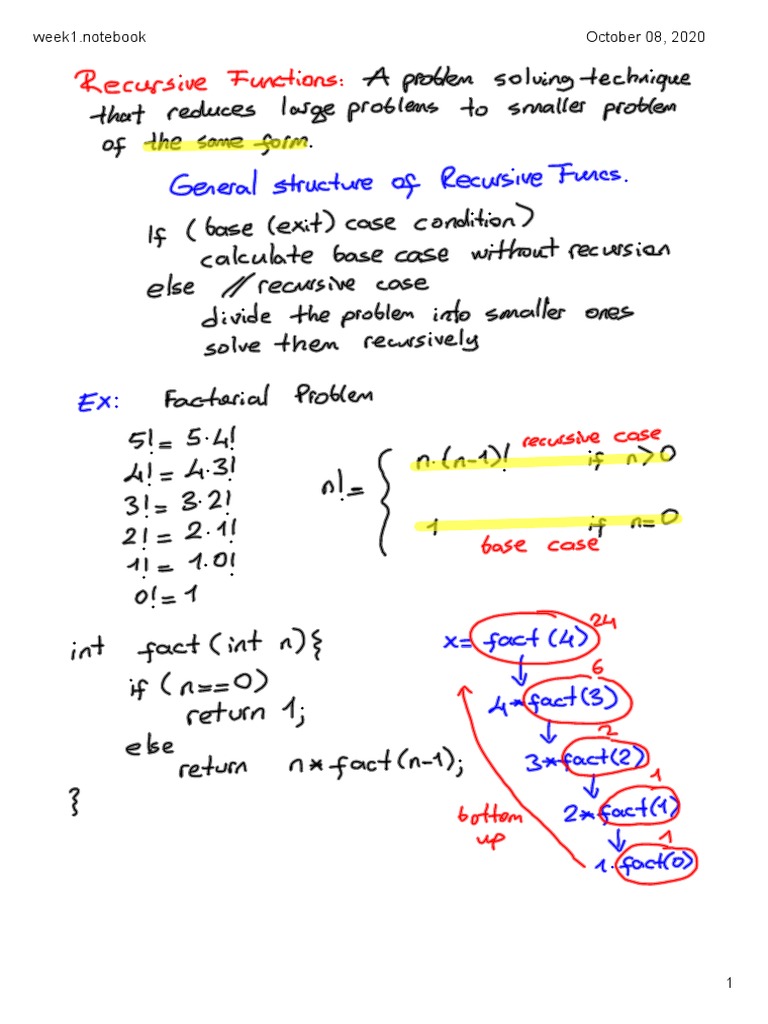 week1.notebook October 08, 2020
Recursive Functions: A problem solving technique
that reduces large problems to smaller problem
of the same form.
General structure of Recursive Funcs.
If (base (exit) case condition)
calculate base case without recursion
else // recursive case
divide the problem into smaller ones
solve them recursively
Ex: Factorial Problem
5! = 5·4!
4! = 4·3!
3! = 3·2!
2! = 2·1!
1! = 1·0!
0! = 1
recursive case
n! = { n·(n-1)! if n>0
1 if n=0
base case
int fact(int n){
if (n==0)
return 1;
else
return n*fact(n-1);
}
x= fact(4) 24
4*fact(3) 6
3*fact(2) 2
2*fact(1) 1
1·fact(0) 1
bottom
up
1